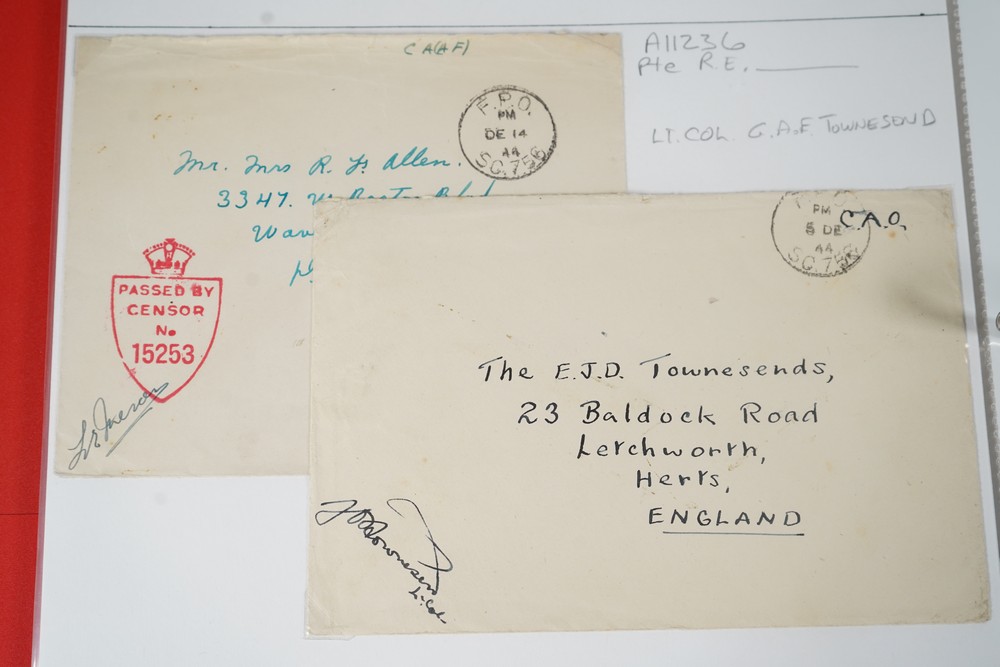 CA(AF)
F.P.O.
PM
DE 14
44
SC.756
A11236
Pte R.E.
LT. COL. G.A.E. TOWNESEND
Mr. Mrs R. Allen.
3347.
PASSED BY
CENSOR
No
15253
PM
5 DE
44
SC.756
C.A.O.
The E.J.D. Townesends,
23 Baldock Road
Letchworth,
Herts,
ENGLAND
Townesend
Lt.Col.